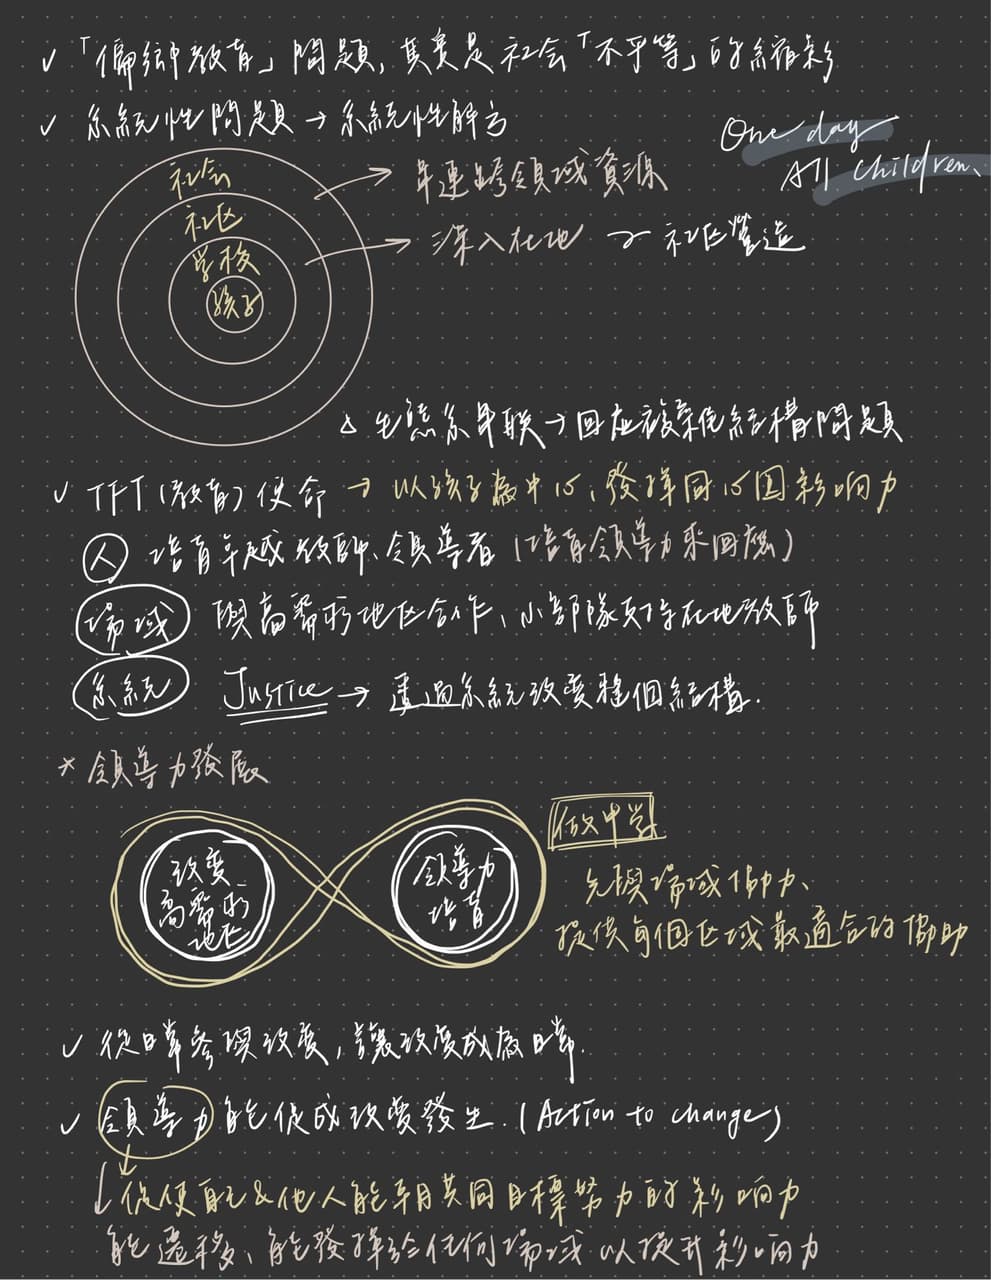 ✓「偏鄉教育」問題,其實是社会「不平等」的縮影
✓ 系統性問題→系統性解方
One day
All Children、
社会
社区
学校
孩子
→ 串連跨領域資源
→ 深入在地 ~ 社区營造
△ 生態系串联→回应複雜化結構問題
✓ TFT(教育)使命 → 以孩子為中心、發揮同心圆影响力
人 培育卓越教師、領導者(培育領導力來回應)
場域 與高需求地区合作、小部隊支持在地教師
系統 Justice → 透過系統改变整個結構.
* 領導力發展
改变
高需求
地区
領導力
培育
做中学
先與場域協力、
提供每個区域最適合的協助
✓ 從日常參與改变,讓改变成為日常.
✓ 領導力能促成改变發生.(Action to change)
↓促使自己&他人能朝共同目標努力的影响力
能遷移、能發揮於任何場域以提升影响力